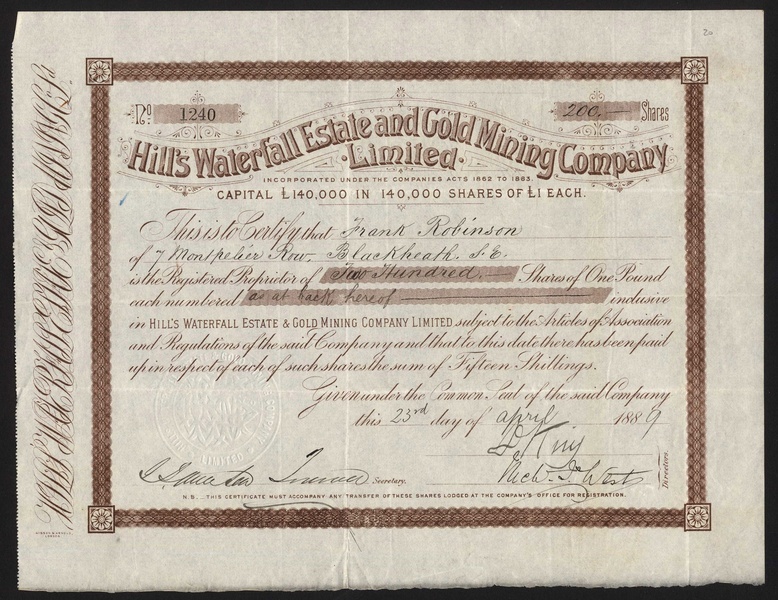 20
No 1240
200,— Shares
Hill's Waterfall Estate and Gold Mining Company
Limited.
INCORPORATED UNDER THE COMPANIES ACTS 1862 TO 1883.
CAPITAL £140,000 IN 140,000 SHARES OF £1 EACH.
This is to Certify that Frank Robinson
of 7 Montpelier Row, Blackheath. S.E.
is the Registered Proprietor of Two Hundred.— Shares of One Pound
each numbered as at back hereof — inclusive
in HILL'S WATERFALL ESTATE & GOLD MINING COMPANY LIMITED subject to the Articles of Association
and Regulations of the said Company and that to this date there has been paid
up in respect of each of such shares the sum of Fifteen Shillings.
Given under the Common Seal of the said Company
this 23rd day of april 1889
Secretary.
Directors.
N.B. THIS CERTIFICATE MUST ACCOMPANY ANY TRANSFER OF THESE SHARES LODGED AT THE COMPANY'S OFFICE FOR REGISTRATION.
LIMITED